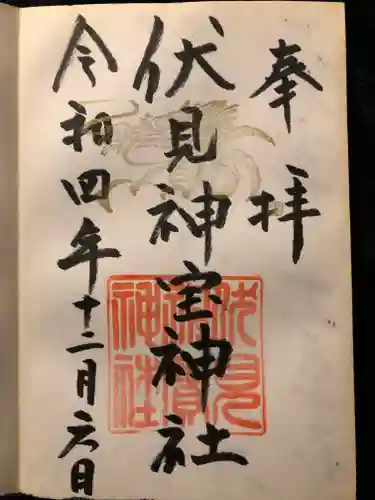 奉拝
伏見神宝神社
令和四年十二月六日
伏見
神寳
神社